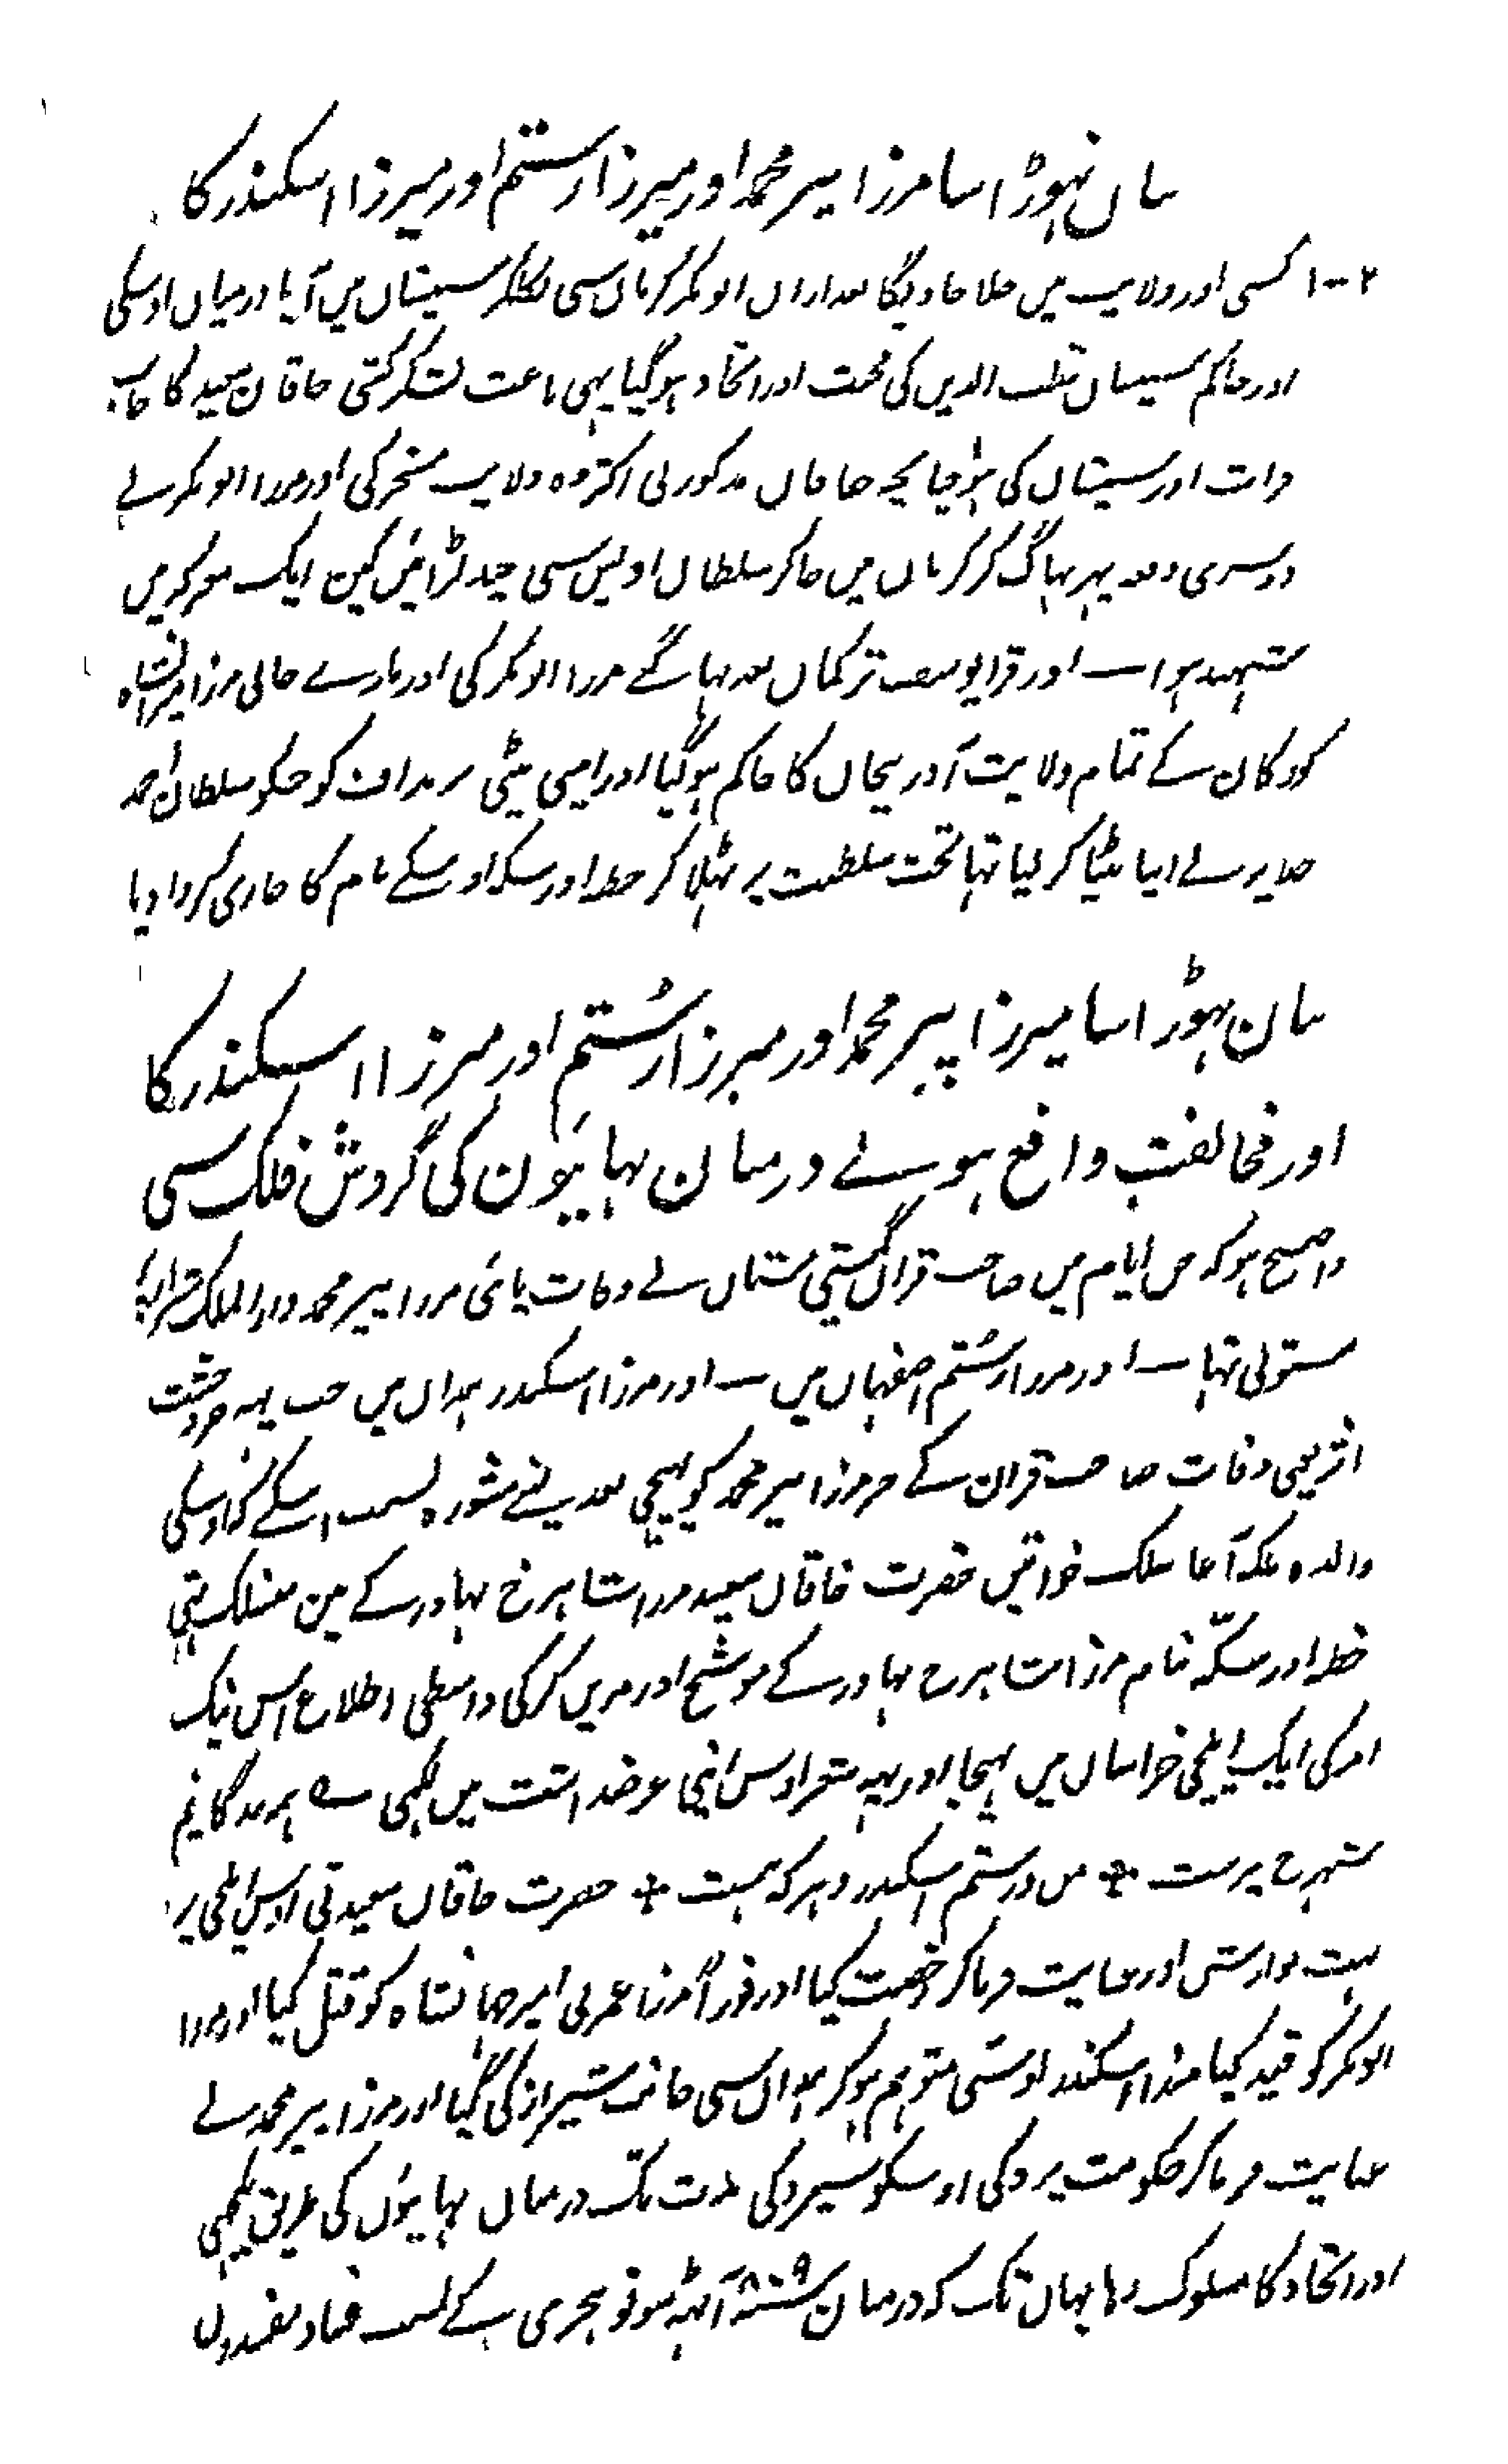 بیان تہوڑا سا مرزا پیر محمد اور میرزا رستم اور میرزا اسکندر کا
۱۰۰۲ کسی اور ولایت میں چلا جاویگا بعد ازاں ابو بکر کرمان سی نکلکر سیستان میں آیا درمیان اوسکی
اور حاکم سیستان قطب الدین کی محبت اور اتحاد ہوگیا یہی باعث لشکر کشی خاقان سعید کا جانب
اور سیستان کی ہوا چنانچہ خاقان مذکور نی اکثر وہ ولایت مسخر کی اور مرزا ابو بکر نے
دوسری دفعہ پہر بہاگ کر کرمان میں جاکر سلطان اویس سی چند لڑائیں کین ایک معرکہ میں
شہید ہوا ـ اور قرا یوسف ترکمان بعد بہاگنے مرزا ابو بکر کی اور مارے جانی مرزا میرانشاہ
کورکان کے تمام ولایت آذربیجان کا حاکم ہوگیا اور اپنی بیٹی پربداق کو جسکو سلطان احمد
جلایر نے اپنا بیٹا کر لیا تہا تخت سلطنت پر بٹہلا کر خطبہ اور سکہ اوسکے نام کا جاری کروا دیا
بیان تہوڑا سا میرزا پیر محمد اور میرزا رستم اور میرزا اسکندر کا
اور مخالفت واقع ہونے درمیان بہائیون کی گردش فلک سی
واضح ہو کہ جن ایام میں صاحب قران گیتی ستان نے وفات پائی مرزا پیر محمد دارالملک شیراز پر
مستولی تہا ـ اور مرزا رستم اصفہان میں ـ اور مرزا اسکندر ہمدان میں جب یہہ خبر وحشت
اثر یعنی وفات صاحب قران کے مرزا پیر محمد کو پہنچی بعد لینے مشورہ بسبب اسکے کہ اوسکی
والدہ ملکہ آغا سلک خواتین حضرت خاقان سعید مرزا شاہرخ بہادر کے میں منسلک تہی
خطبہ اور سکہ بنام مرزا شاہرخ بہادر کے موشح اور مزین کر کی واسطی اطلاع اس نیک
امر کی ایک ایلچی خراسان میں بہیجا اور یہہ شعر اوس اپنی عرضداشت میں لکہی ؎ ہمہ بندگانیم
شہرخ پرست ؞ من و رستم اسکندر و ہر کہ ہست ؞ حضرت خاقان سعید نی اوس ایلچی پر
بہت نوازش اور عنایت فرما کر رخصت کیا اور فوراً مرزا عمر نی امیر جہانشاہ کو قتل کیا اور مرزا
ابو بکر کو قید کیا مرزا اسکندر اوسسی متوہم ہو کر ہمدان سی جانب شیراز کی گیا اور مرزا پیر محمد نے
عنایت فرما کر حکومت یزد کی اوسکو سپرد کی مدت تک درمیان بہائیوں کی طریق
اور اتحاد کا مسلوک رہا یہاں تک کہ درمیان سنہ ۸۰۹ آٹہہ سو نو ہجری کے بسبب فساد مفسدوں